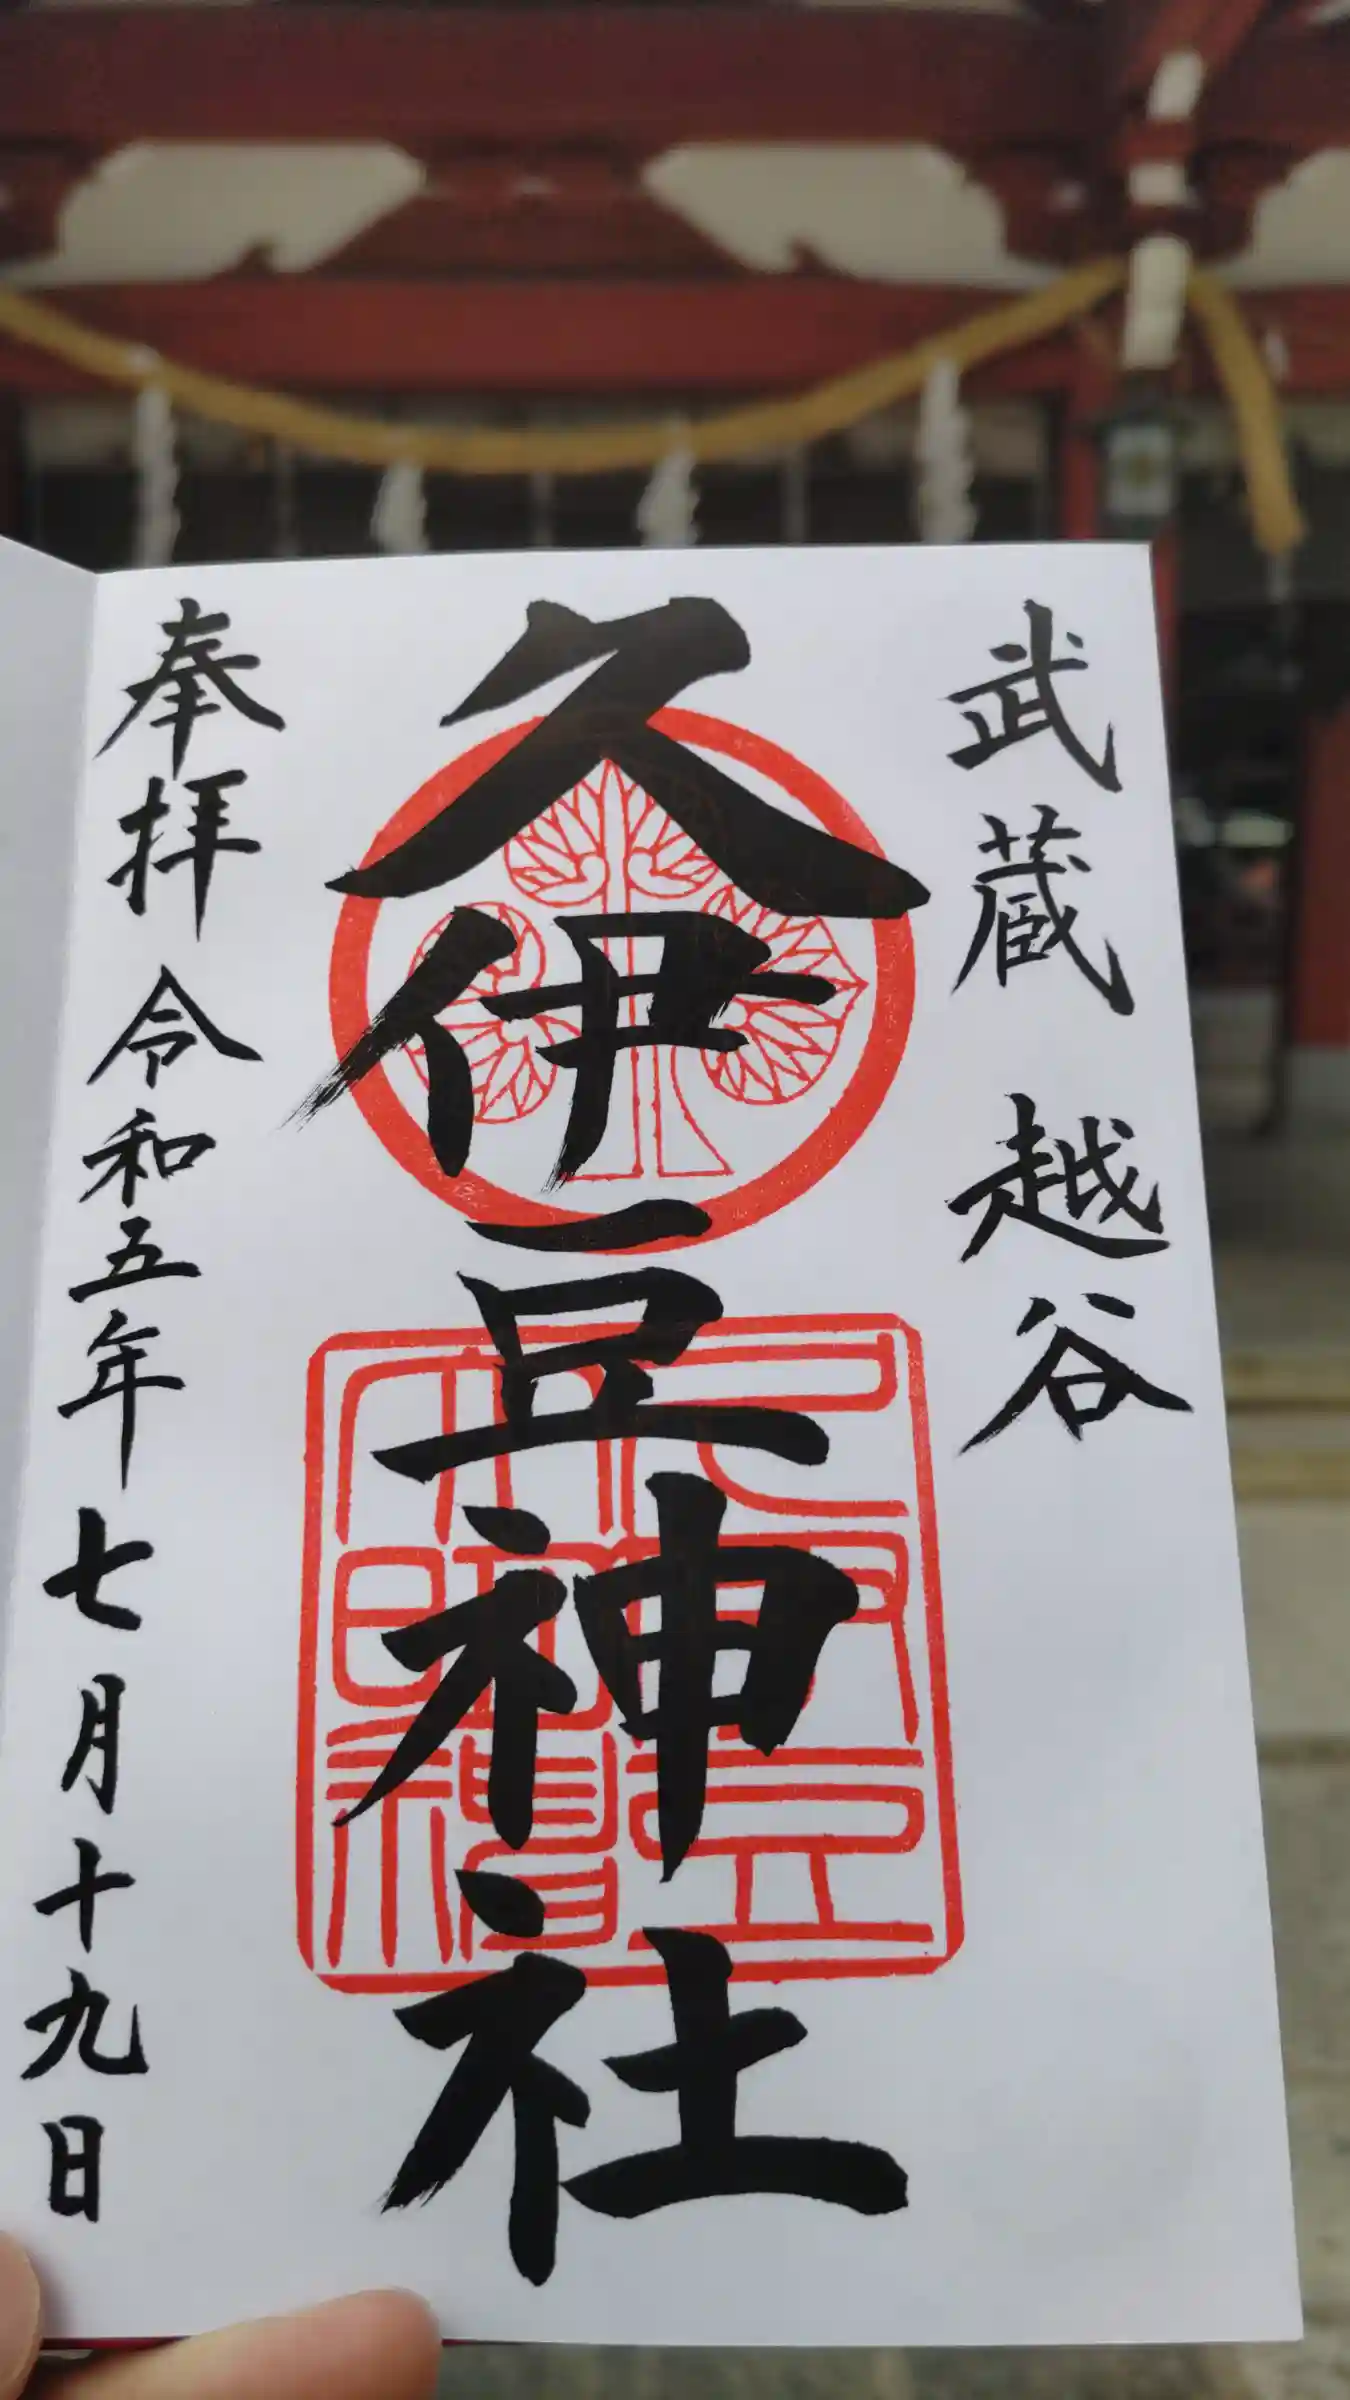 武蔵 越谷
久伊豆神社
奉拝 令和五年七月十九日